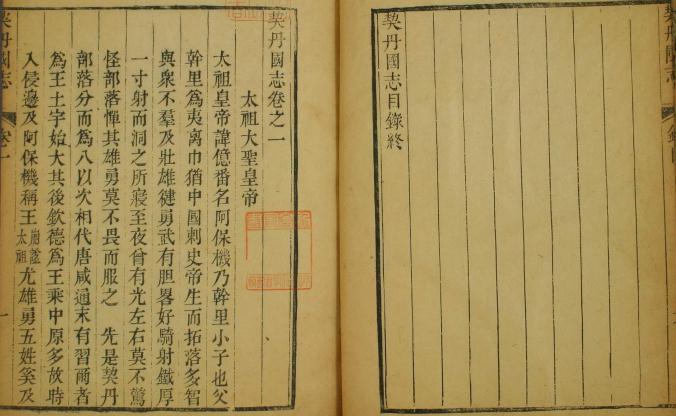 契丹國志
契丹國志目錄終
契丹國志卷之一
太祖大聖皇帝
太祖皇帝諱億番名阿保機乃幹里小子也父
幹里爲夷离巾猶中國刺史帝生而拓落多智
與衆不羣及壯雄健勇武有胆畧好騎射鐵厚
一寸射而洞之所寢至夜曾有光左右莫不驚
怪部落憚其雄勇莫不畏而服之　先是契丹
部落分而爲八以次相代唐咸通末有習爾者
爲王土宇始大其後欽德爲王乘中原多故時
入侵邊及阿保機稱王太祖尤雄勇五姓奚及
契丹國志
卷一
一